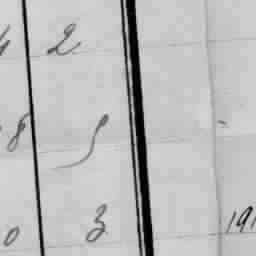 4 2
8 9
0 3 191